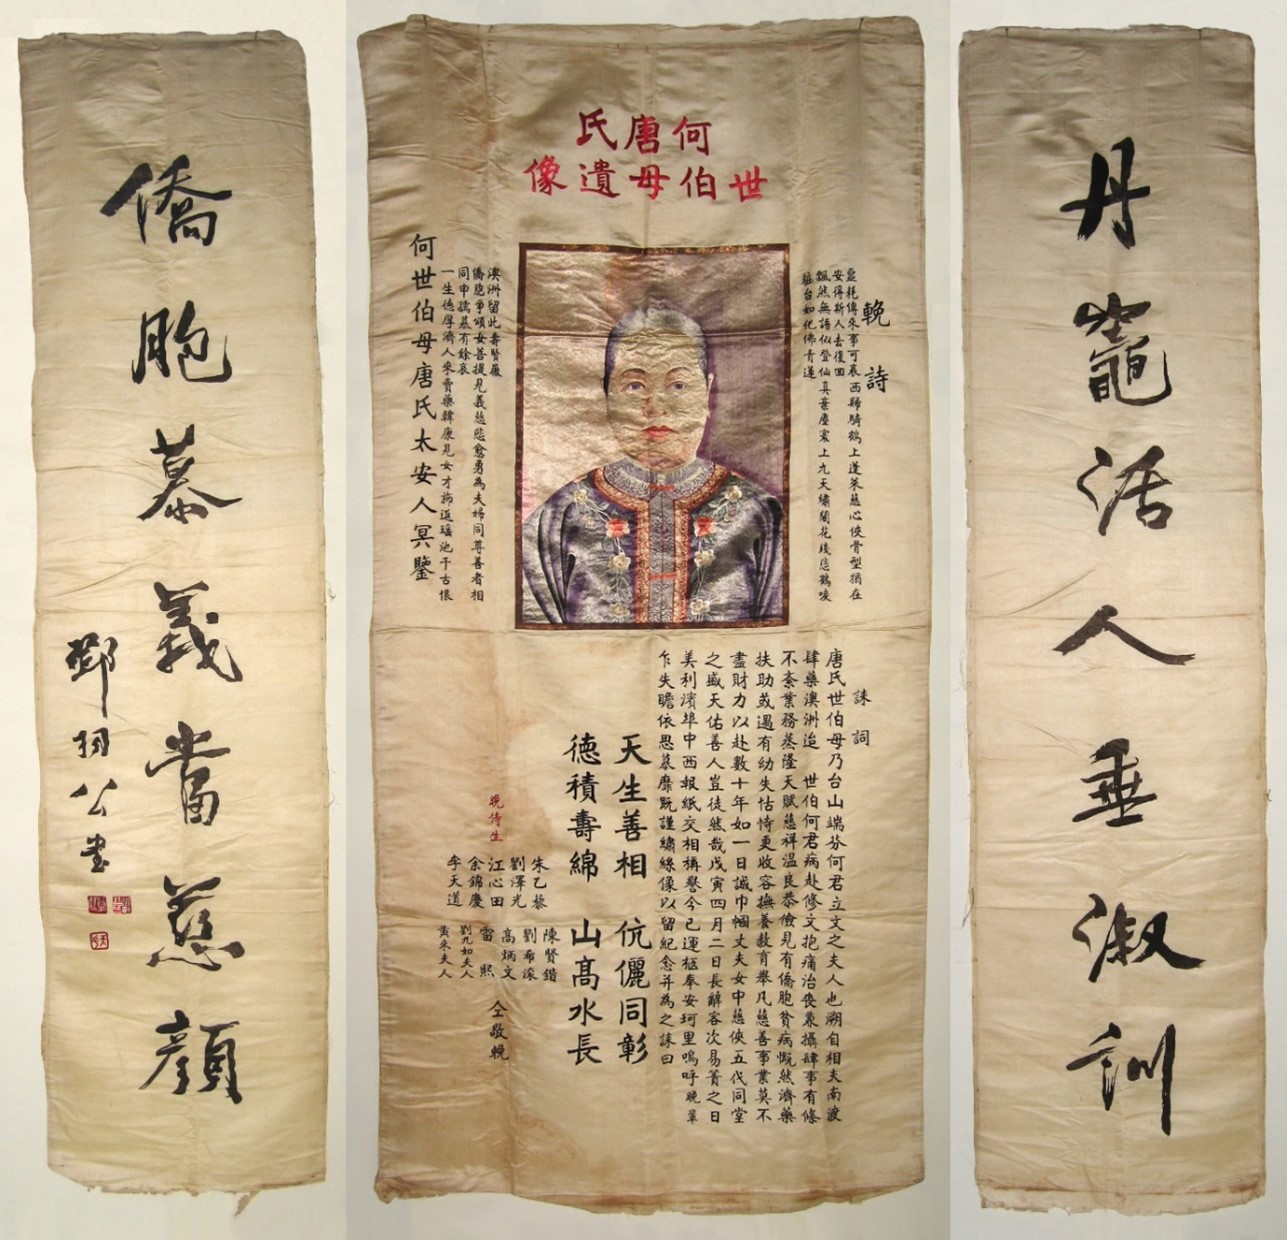 丹竈活人垂淑訓
何唐氏
世伯母遺像
輓詩
噩耗傳來事可哀西歸騎鶴上蓬萊慈心俠骨型猶在
安得斯人去復回
飄然無語似登仙真棄塵寰上九天繡閣花殘悲鶴唳
粧台如化佛青蓮
澳洲留此壽賢
僑胞爭頌女菩提見義慈悲愈勇為夫婦同尊善者相
同申孺慕有餘哀
一生德厚濟人來賣藥韓康見女才返瑤池千古恨
何世伯母唐氏太安人冥鑒
誄詞
唐氏世伯母乃台山端芬何君立文之夫人也溯自相夫南渡
肆藥澳洲迨 世伯何君病赴修文抱痛治喪兼攝肆事有條
不紊業務蒸隆天賦慈祥溫良恭儉見有僑胞貧病慨然濟藥
扶助或遇有幼失怙恃更收容撫養教育舉凡慈善事業莫不
盡財力以赴數十年如一日誠巾幗丈夫女中慈俠五代同堂
之盛天佑善人豈徒然哉戊寅四月二日長辭客次易簀之日
美利濱埠中西報紙交相稱譽今已運柩奉安珂里嗚呼晚輩
乍失瞻依思慕靡既謹繡絲像以留紀念并為之誄曰
天生善相 伉儷同彰
德積壽綿 山高水長
晚侍生
朱乙藜 陳賢鍇
劉澤光 劉希滾
江心田 高炳文
余錦慶 雷熙
李天道 劉九如夫人
黃來夫人
仝敬輓
僑胞慕義當慈顏
鄧翔公書